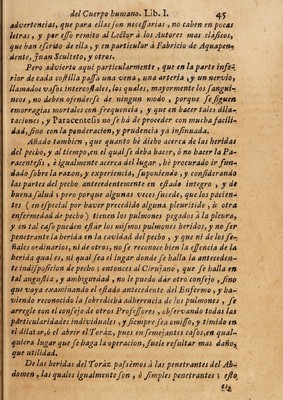 del Cuerpo humano. Lib. I. 45
advertencias, que para ellas son necessarias, no caben en pocas
letras, y por esso remito al Lector à los Autores mas clásicos,
que han escrito de ella, y en particular à Fabricio de Aquapen-
dente, Juan Sculteto, y otros.
Pero advierto aqui particularmente, que en la parte infe-
rior de cada costilla passa una vena, una arteria, y un nervio,
llamados vasos intercostales, los quales, mayormente los sangui-
neos, no deben ofenderse de ningun modo, porque se siguen
emorragias mortales con frequencia, y que en hacer tales dila-
taciones, y Paracentesis no se há de proceder con mucha facili-
dad, sino con la ponderacion, y prudencia yá insinuada.
Añado tambien, que quanto hé dicho acerca de las heridas
del pecho, y al tiempo, en el qual se deba hacer, ò no hacer la Pa-
racentesis, è igualmente acerca del lugar, hé procurado ir fun-
dado sobre la razon, y experiencia, suponiendo, y considerando
las partes del pecho antecedentemente en estado integro, y de
buena salud; pero porque algunas veces sucede, que los pacien-
tes (en especial por haver precedido alguna pleuritide, ù otra
enfermedad de pecho) tienen los pulmones pegados à la pleura,
y en tal caso pueden estár los mismos pulmones heridos, y no ser
penetrante la herida en la cavidad del pecho, y que ni de los se-
ñales ordinarios, ni de otros, no se reconoce bien la essencia de la
herida qual es, ni qual sea el lugar donde se halla la anteceden-
te indisposicion de pecho; entonces al Cirujano, que se halla en
tal angustia, y ambiguedad, no le puedo dár otro consejo, sino
que vaya examinando el estado antecedente del Enfermo, y ha-
viendo reconocido la sobredicha adherencia de los pulmones, se
arregle con el consejo de otros Professores, observando todas las
particularidades individuales, y siempre sea omisso, y timido en
el dilatar, ò abrir el Toráz, pues en semejantes casos, en qual-
quiera lugar que se haga la operacion, suele resultar mas daño,
que utilidad.
De las heridas del Toráz passèmos à las penetrantes del Ab-
domen, las quales igualmente son, ò simples penetrantes; esto
es,